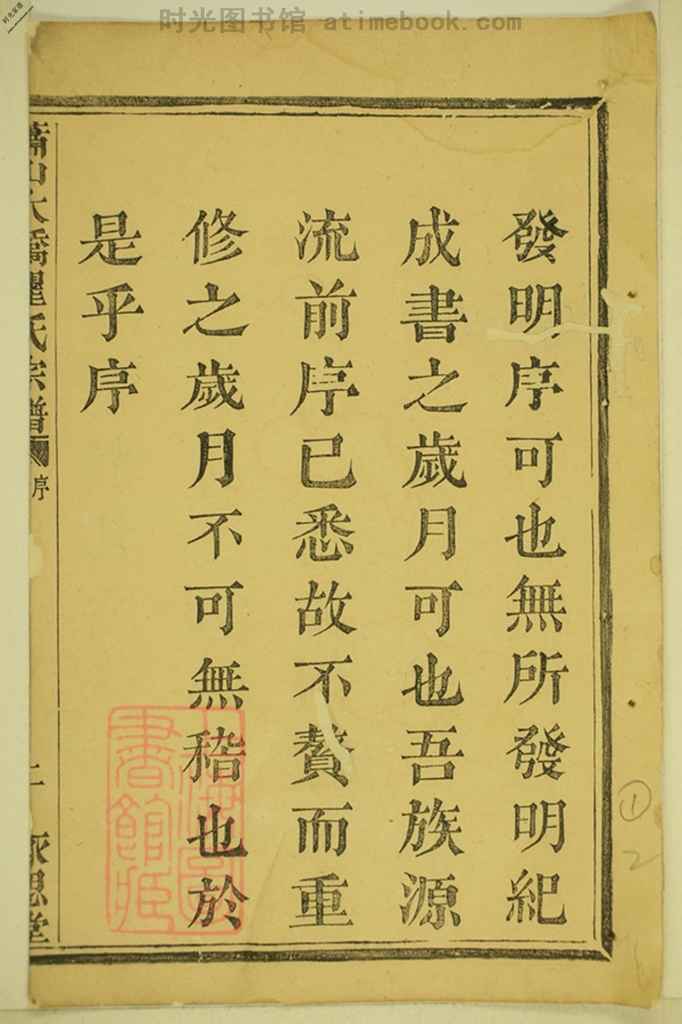 时光图书馆 atimebook.com
發明序可也無所發明紀
成書之歲月可也吾族源
流前序已悉故不贅而重
修之歲月不可無稽也於
是乎序
蕭山大橋瞿氏宗譜
序
二
永思堂
①
2